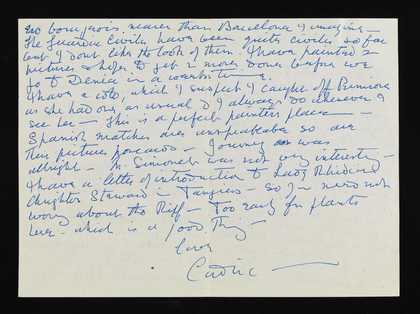 no bourgeois nearer than Barcelona I imagine -
The Guardia Civiles have been quite civiles so far
but I don't like the look of them. I have painted 2
pictures & hope to get 2 more done before we
go to Denia in a weeks time.
I have a cold, which I suspect I caught off Primrose
as she had one as usual & I always do whenever I
see her - This is a perfect painters place -
Spanish matches are unspeakable so are
their picture postcards - Journey was
allright - M Simonets was not very interesting -
I have a letter of introduction to Lady
daughter Steward in Tangiers - so you need not
worry about the Riff - Too early for plants
here - which is a good thing -
Love
Cedric